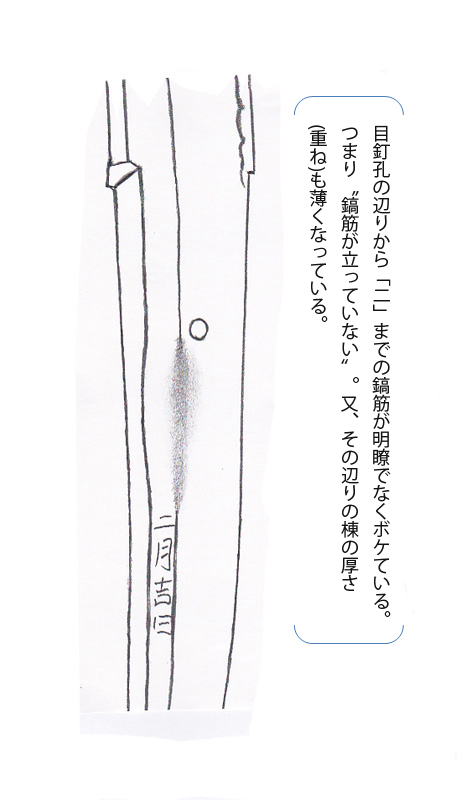 目釘孔の辺りから「二」までの鎬筋が明瞭でなくボケている。
つまり〝鎬筋が立っていない〟。又、その辺りの棟の厚さ
(重ね)も薄くなっている。
二月吉日